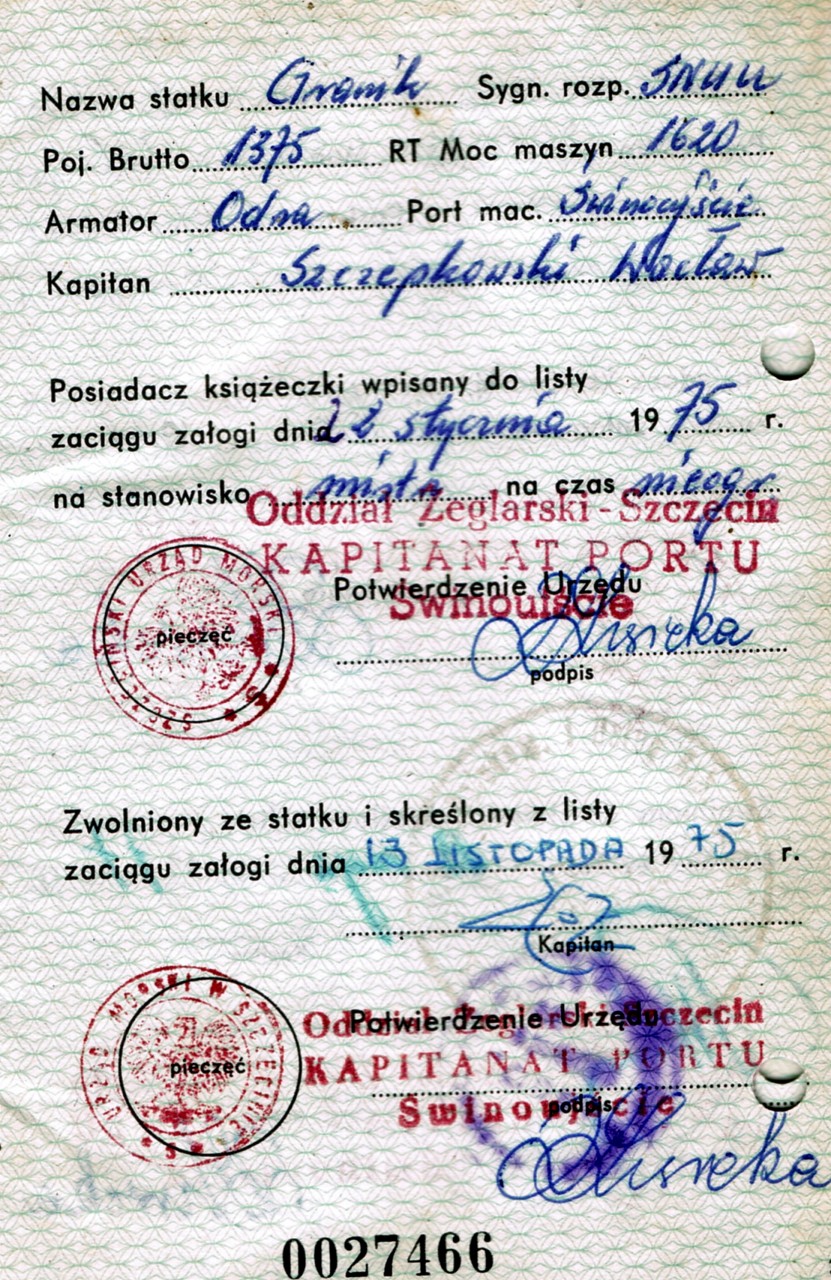 Nazwa statku Granik Sygn. rozp. SNUU
Poj. Brutto 1375 RT Moc maszyn 1620
Armator Odra Port mac. Świnoujście
Kapitan Szczepkowski Wacław
Posiadacz książeczki wpisany do listy
zaciągu załogi dnia 22 stycznia 1975 r.
na stanowisko mistrz na czas nieogr.
Oddział Żeglarski - Szczecin
KAPITANAT PORTU
Potwierdzenie Urzędu
Świnoujście
SZCZECIŃSKI URZĄD MORSKI * 5 *
pieczęć
podpis
Zwolniony ze statku i skreślony z listy
zaciągu załogi dnia 13 LISTOPADA 1975 r.
Kapitan
Oddział Żeglarski Szczecin
Potwierdzenie Urzędu
KAPITANAT PORTU
URZĄD MORSKI W SZCZECINIE * 5 *
pieczęć
Świnoujście
podpis
0027466